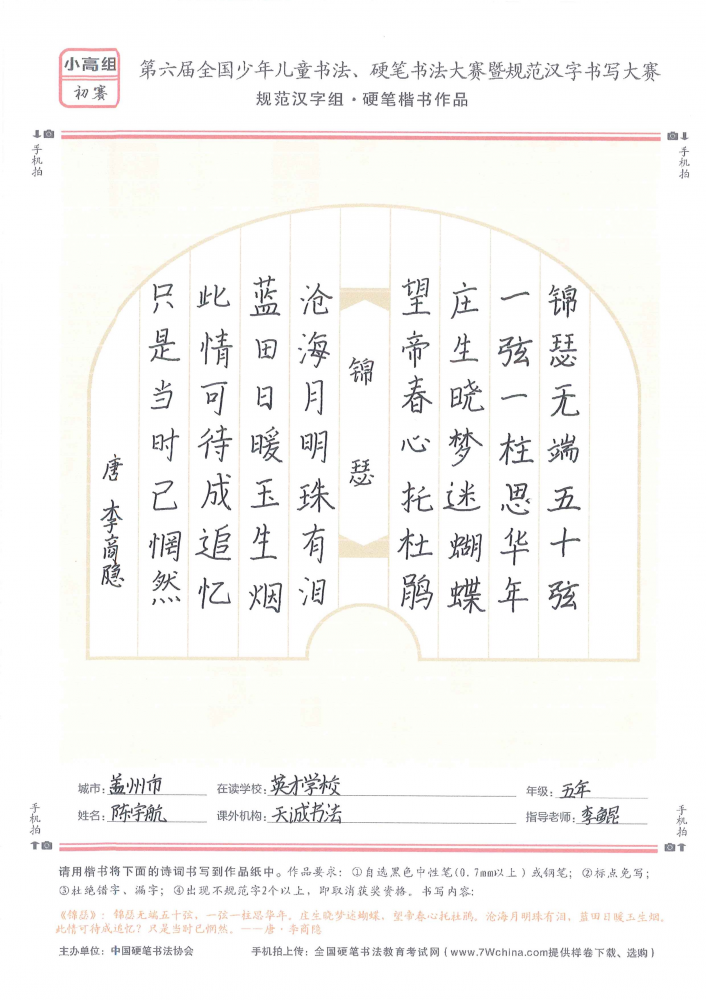 小高组
初赛
第六届全国少年儿童书法、硬笔书法大赛暨规范汉字书写大赛
规范汉字组·硬笔楷书作品
手机拍
手机拍
锦瑟无端五十弦
一弦一柱思华年
庄生晓梦迷蝴蝶
望帝春心托杜鹃
锦瑟
沧海月明珠有泪
蓝田日暖玉生烟
此情可待成追忆
只是当时已惘然
唐 李商隐
城市: 盖州市 在读学校: 英才学校 年级: 五年
姓名: 陈宇航 课外机构: 天诚书法 指导老师: 李鲲
手机拍
手机拍
请用楷书将下面的诗词书写到作品纸中。作品要求：①自选黑色中性笔(0.7mm以上)或钢笔；②标点免写；
③杜绝错字、漏字；④出现不规范字2个以上，即取消获奖资格。书写内容:
《锦瑟》：锦瑟无端五十弦，一弦一柱思华年。庄生晓梦迷蝴蝶，望帝春心托杜鹃。沧海月明珠有泪，蓝田日暖玉生烟。
此情可待成追忆？只是当时已惘然。——唐·李商隐
主办单位：中国硬笔书法协会 手机拍上传：全国硬笔书法教育考试网（www.7Wchina.com提供样卷下载、选购）